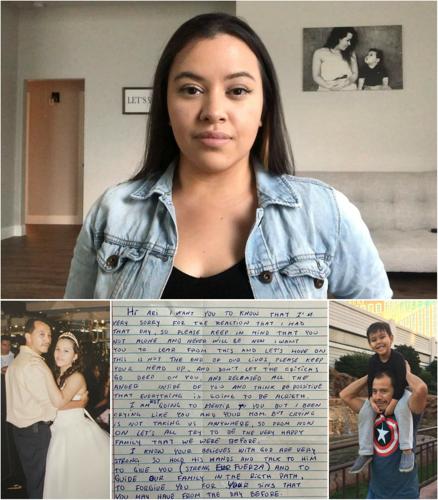 LET'S
HI ARI I WANT YOU TO KNOW THAT I'M
VERY SORRY FOR THE REACTION THAT I HAD
THAT DAY, SO PLEASE KEEP IN MIND THAT YOU
NOT ALONE AND NEVER WILL BE NOW I WANT
YOU TO LEAR FROM THIS AND LET'S MOVE ON
THIS IS NOT THE END OF OUR LIVES, PLEASE KEEP
YOUR HEAD UP, AND DON'T LET THE CRITICAS
GO DEEP ON YOU, AND RELEASED ALL THE
ANGER INSIDE OF YOU AND THINK BE POSITIVE
THAT EVERYTHING IS GOING TO BE ALRIGTH.
I AM GOING TO YOU BUT I BEEN
CRYING LIKE YOU ANY YOUR MOM, BUT CRYING
IS NOT TAKING US ANYWHERE, SO FROM NOW
ON LET'S ALL TRY TO BE THE VERY HAPPY
FAMILY THAT WE WERE BEFORE.
I KNOW YOUR BELIEVES WITH GOD ARE VERY
STRONG SO HOLD HIS HANDS AND TALK TO HIM
TO GIVE YOU (STRENG FUERZA) AND TO
GUIDE OUR FAMILY IN THE RIGTH PATH,
TO FORGIVE YOU FOR YOUR SINS THAT
YOU MAY HAVE FROM THE DAY BEFORE.